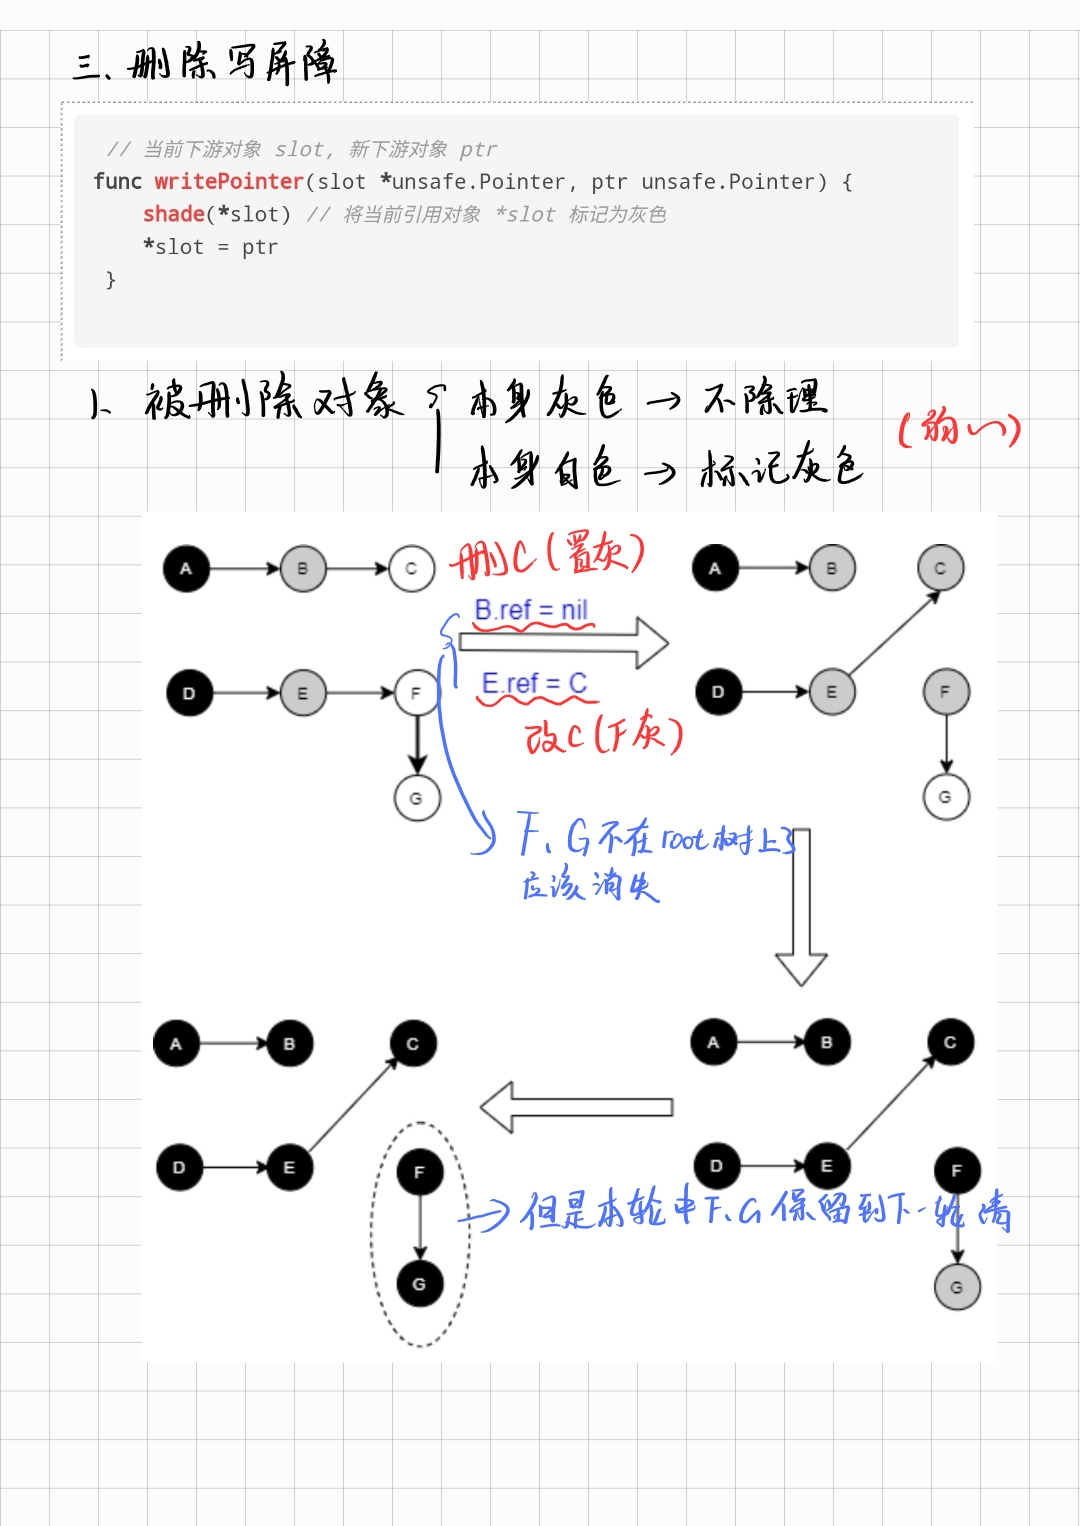 三、删除写屏障
// 当前下游对象 slot, 新下游对象 ptr
func writePointer(slot *unsafe.Pointer, ptr unsafe.Pointer) {
shade(*slot) // 将当前引用对象 *slot 标记为灰色
*slot = ptr
}
1、被删除对象 { 本身灰色 → 不除理
本身白色 → 标记灰色
(弱い)
A B C
删C(置灰)
A B C
B.ref = nil
D E F
E.ref = C
D E F
改C(F灰)
G
G
F、G不在root树上了
应该消失
A B C
A B C
D E F
D E F
→但是本轮中F、G保留到下一轮清
G
G